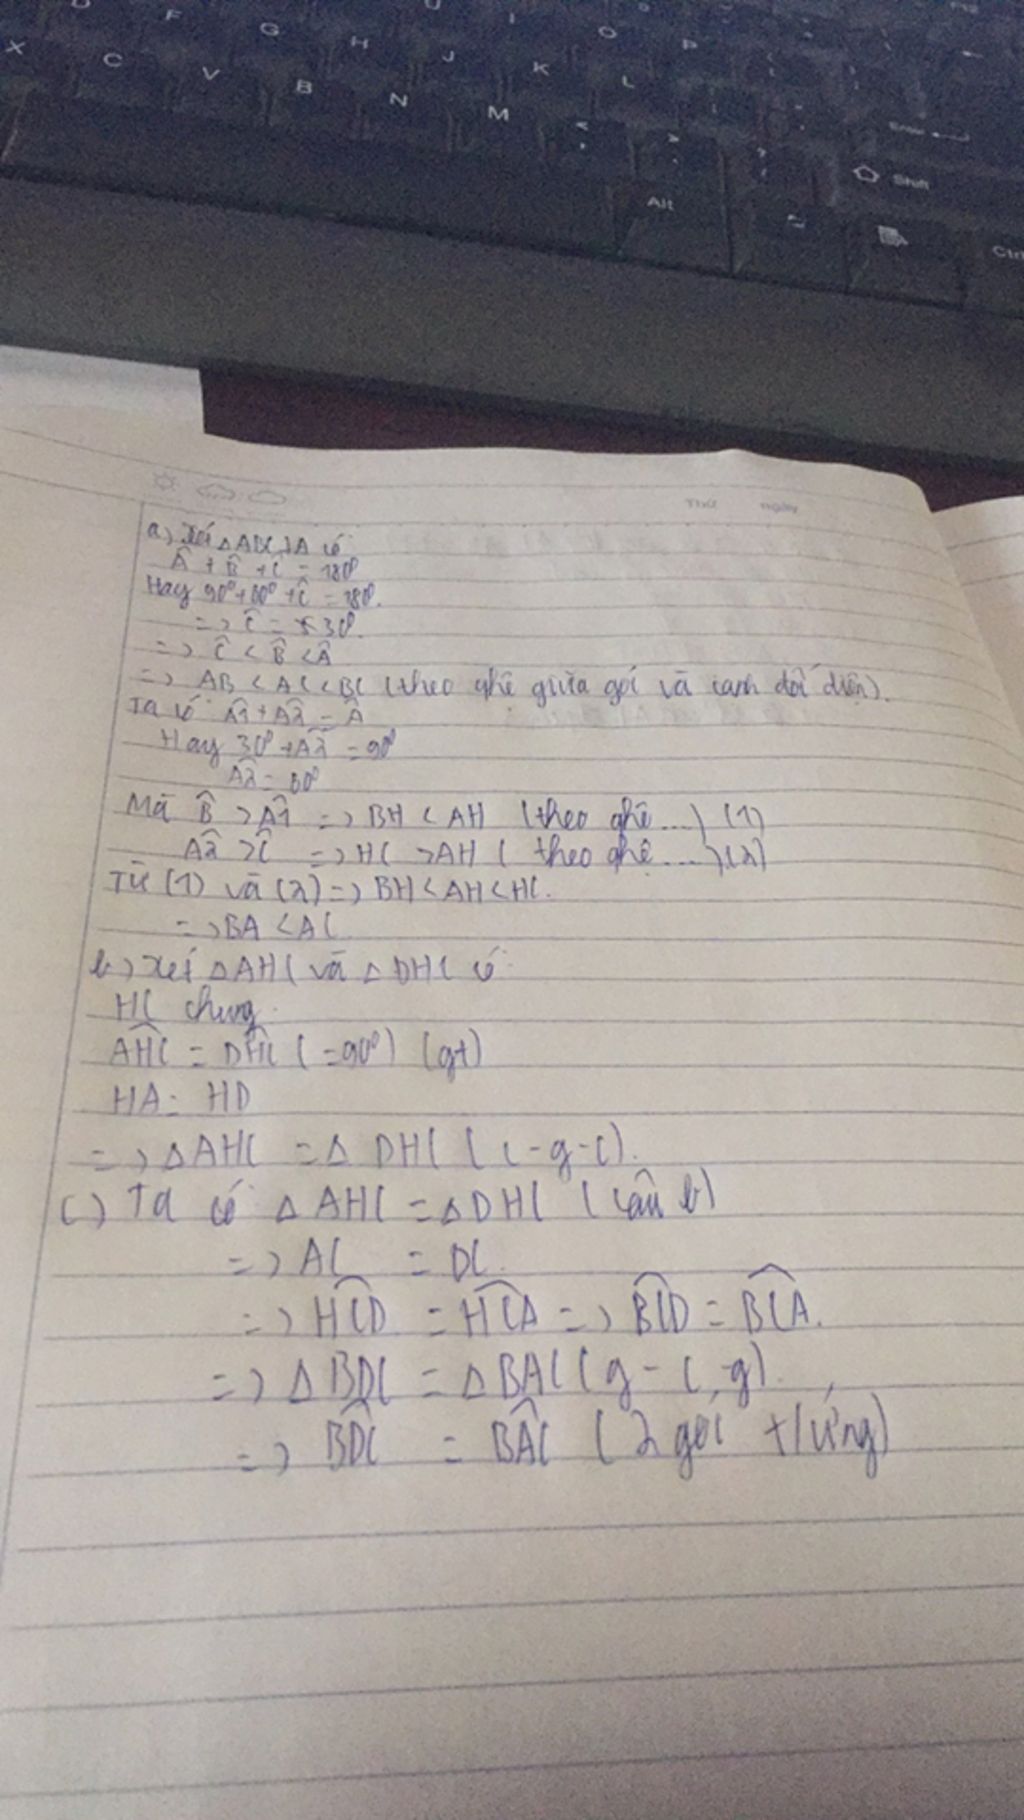 X C V B N M
F G H J K L
Alt
Shift
Ctrl
Thứ ngày
a) Xét △ABC ⊥ A có
Â + B̂ + Ĉ = 180⁰
Hay 90⁰ + 60⁰ + Ĉ = 180⁰.
=> Ĉ = 30⁰.
=> Ĉ < B̂ < Â
=> AB < AC < BC (theo qhệ giữa góc và cạnh đối diện).
Ta có Â1 + Â2 = Â
Hay 30⁰ + Â2 = 90⁰
Â2 = 60⁰
Mà B̂ > Â1 => BH < AH (theo qhệ ...) (1)
Â2 > Ĉ => HC > AH ( theo qhệ ...) (2)
Từ (1) và (2) => BH < AH < HC.
=> BA < AC
b) Xét △AHC và △DHC có
HC chung.
AHC = DHC (=90⁰) (gt)
HA = HD
=> △AHC = △DHC (c-g-c).
c) Ta có △AHC = △DHC (câu b)
=> AC = DC.
=> HCD = HCA => BCD = BCA.
=> △BDC = △BAC (g-c,g).
=> BDC = BAC (2 góc t/ứng)